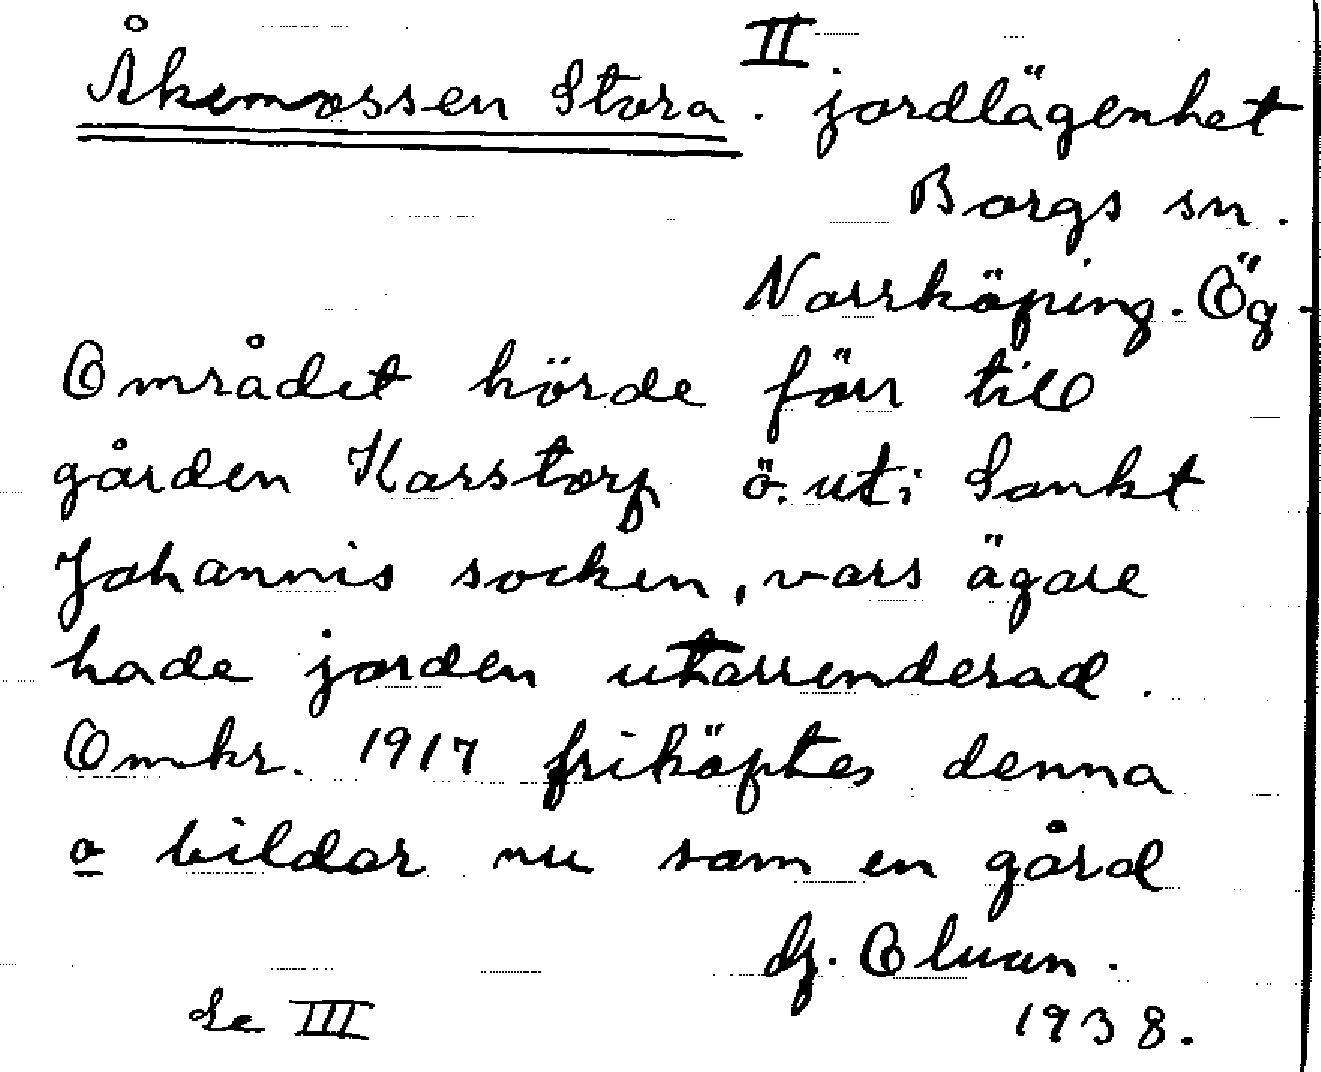 II
Åkemossen Stora. jordlägenhet
Borgs sn.
Norrköping. Ög.
Området hörde förr till
gården Karstorp ö. uti Sankt
Johannis socken, vars ägare
hade jorden utarrenderad.
Omkr. 1917 friköptes denna
o bildar nu som en gård
G. Eluan.
Se III
1938.